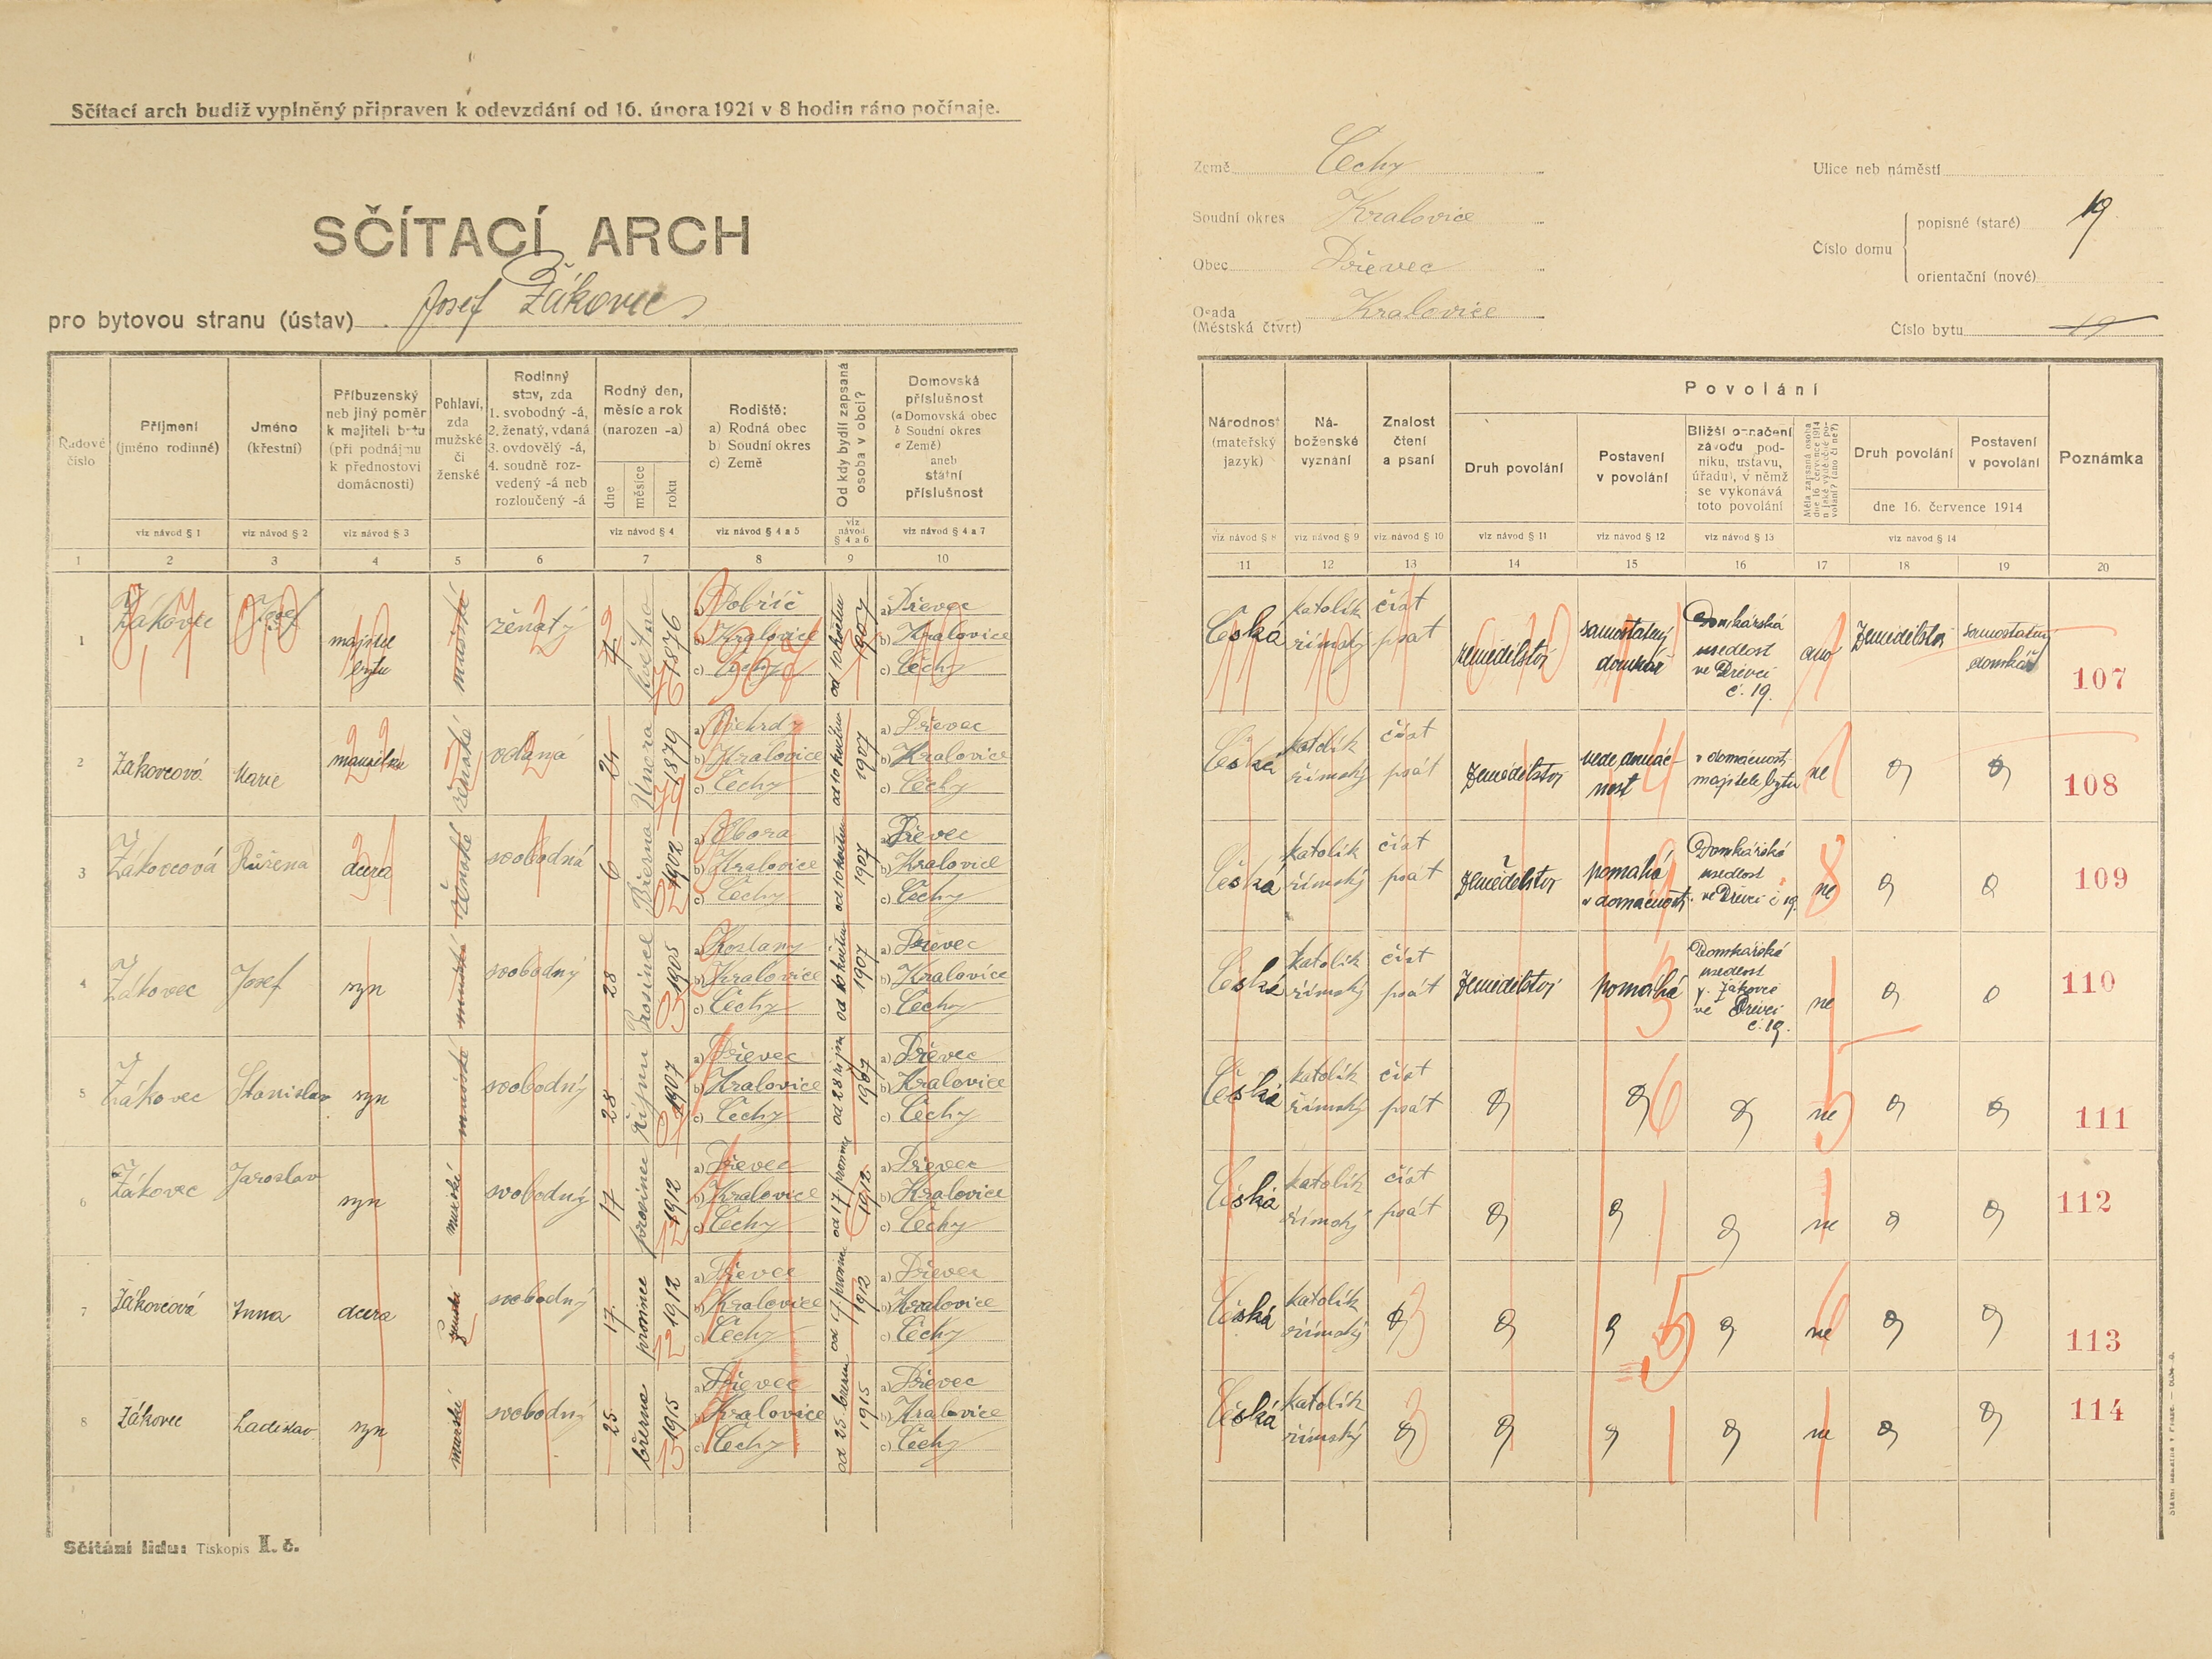 Sčítací arch budiž vyplněný připraven k odevzdání od 16. února 1921 v 8 hodin ráno počínaje.
SČÍTACÍ ARCH
pro bytovou stranu (ústav) Josef Žákovec
Země Čechy
Soudní okres Kralovice
Obec Dřevec
Osada (Městská čtvrt) Kralovice
Ulice neb náměstí
Číslo domu
popisné (staré) 19
orientační (nové)
Číslo bytu 19
Řadové číslo
Příjmení (jméno rodinné)
Jméno (křestní)
Příbuzenský neb jiný poměr k majiteli bytu (při podnájmu k přednostovi domácnosti)
Pohlaví, zda mužské či ženské
Rodinný stav, zda 1. svobodný -á, 2. ženatý, vdaná 3. ovdovělý -á, 4. soudně rozvedený -á neb rozloučený -á
Rodný den, měsíc a rok (narozen -a)
dne měsíce roku
Rodiště: a) Rodná obec b) Soudní okres c) Země
Od kdy bydlí zapsaná osoba v obci?
Domovská příslušnost (a Domovská obec b Soudní okres c Země) aneb státní příslušnost
Národnost (mateřský jazyk)
Náboženské vyznání
Znalost čtení a psaní
Povolání
Druh povolání
Postavení v povolání
Bližší označení závodu podniku, ústavu, úřadu), v němž se vykonává toto povolání
Měla zapsaná osoba dne 16. července 1914 nějaké výdělečné povolání? (ano či ne?)
Druh povolání
Postavení v povolání
dne 16. července 1914
Poznámka
viz návod § 1 viz návod § 2 viz návod § 3 viz návod § 4 viz návod § 4 a 5 viz návod § 4 a 6 viz návod § 4 a 7
viz návod § 8 viz návod § 9 viz návod § 10 viz návod § 11 viz návod § 12 viz návod § 13 viz návod § 14
1 2 3 4 5 6 7 8 9 10
11 12 13 14 15 16 17 18 19 20
1 Žákovec Josef majitel bytu mužské ženatý 7 května 1876 a) Dobříč b) Kralovice c) Čechy od 10 května 1907 a) Dřevec b) Kralovice c) Čechy
Česká katolík římský číst psat zemědělství samostatný domkář Domkářská usedlost ve Dřevci č. 19. ano Zemědělství samostatný domkář 107
2 Žákovcová Marie manželka ženské vdaná 24 Února 1879 a) Břehrdy b) Kralovice c) Čechy od 10 května 1907 a) Dřevec b) Kralovice c) Čechy
Česká katolík římský číst psát Zemědělství vede domácnost v domácnosti majitele bytu ne 0 0 108
3 Žákovcová Růžena dcera ženské svobodná 6 Března 1902 a) Obora b) Kralovice c) Čechy od 10 května 1907 a) Dřevec b) Kralovice c) Čechy
Česká katolík římský číst psát Zemědělství pomahá v domácnosti Domkářská usedlost ve Dřevci č 19. ne 0 0 109
4 Žákovec Josef syn mužské svobodný 28 Prosinec 1905 a) Kozlany b) Kralovice c) Čechy od 10 května 1907 a) Dřevec b) Kralovice c) Čechy
Česká katolík římský číst psát Zemědělství pomáhá Domkářská usedlost p. Žákovce ve Dřevci č. 19. ne 0 0 110
5 Žákovec Stanislav syn mužské svobodný 28 říjnu 1907 a) Dřevec b) Kralovice c) Čechy od 28 říjn 1907 a) Dřevec b) Kralovice c) Čechy
Česká katolík římský číst psát 0 0 0 ne 0 0 111
6 Žákovec Jaroslav syn mužské svobodný 17 prosinec 1912 a) Dřevec b) Kralovice c) Čechy od 17 prosince 1912 a) Dřevec b) Kralovice c) Čechy
Česká katolík římský číst psát 0 0 0 ne 0 0 112
7 Žákovcová Anna dcera ženské svobodný 17 prosince 1912 a) Dřevec b) Kralovice c) Čechy od 17 prosince 1912 a) Dřevec b) Kralovice c) Čechy
Česká katolík římský 0 0 0 0 ne 0 0 113
8 Žákovec Ladislav syn mužské svobodný 25 března 1915 a) Dřevec b) Kralovice c) Čechy od 25 března 1915 a) Dřevec b) Kralovice c) Čechy
Česká katolík římský 0 0 0 0 ne 0 0 114
Sčítání lidu: Tiskopis I. č.